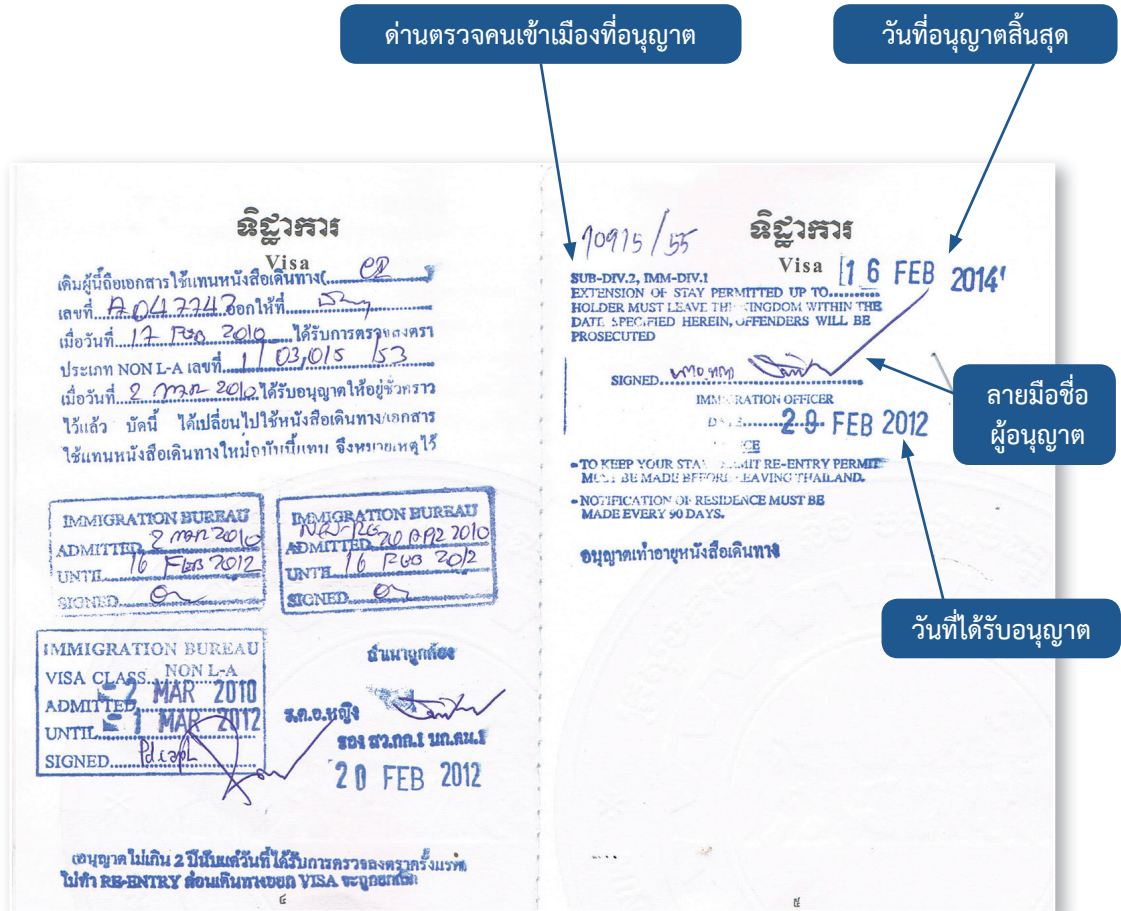 ด่านตรวจคนเข้าเมืองที่อนุญาต
วันที่อนุญาตสิ้นสุด
ทิฏฐาการ
Visa
เดิมผู้นี้ถือเอกสารใช้แทนหนังสือเดินทาง(
เลขที่ A047743 ออกให้ที่
เมื่อวันที่ 17 FEB 2010 ได้รับการตรวจลงตรา
ประเภท NON L-A เลขที่ 1/03,015/53
เมื่อวันที่ 2 MAR 2010 ได้รับอนุญาตให้อยู่ชั่วคราว
ไว้แล้ว บัดนี้ ได้เปลี่ยนไปใช้หนังสือเดินทาง/เอกสาร
ใช้แทนหนังสือเดินทางใหม่ฉบับนี้แทน จึงหมายเหตุไว้
IMMIGRATION BUREAU
ADMITTED 2 MAR 2010
UNTIL 16 FEB 2012
SIGNED
IMMIGRATION BUREAU
ADMITTED 20 APR 2010
UNTIL 16 FEB 2012
SIGNED
IMMIGRATION BUREAU
VISA CLASS NON L-A
ADMITTED 2 MAR 2010
UNTIL 1 MAR 2012
SIGNED
สำเนาถูกต้อง
ร.ต.อ.หญิง
รอง สว.กก.1 บก.ตม.1
20 FEB 2012
(อนุญาตไม่เกิน 2 ปีนับแต่วันที่ได้รับการตรวจลงตราครั้งแรก
ไม่ทำ RE-ENTRY ก่อนเดินทางออก VISA จะถูกยกเลิก
๔
10915/55
ทิฏฐาการ
Visa
16 FEB 2014
SUB-DIV.2, IMM-DIV.1
EXTENSION OF STAY PERMITTED UP TO
HOLDER MUST LEAVE THE KINGDOM WITHIN THE
DATE SPECIFIED HEREIN, OFFENDERS WILL BE
PROSECUTED
SIGNED
IMMIGRATION OFFICER
DATE 29 FEB 2012
ลายมือชื่อ
ผู้อนุญาต
- TO KEEP YOUR STAY PERMIT RE-ENTRY PERMIT
MUST BE MADE BEFORE LEAVING THAILAND.
- NOTIFICATION OF RESIDENCE MUST BE
MADE EVERY 90 DAYS.
อนุญาตเท่าอายุหนังสือเดินทาง
วันที่ได้รับอนุญาต
๕